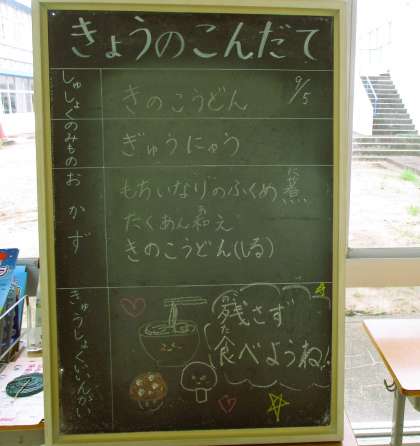 きょうのこんだて
しゅしょく きのこうどん 9/5
のみもの ぎゅうにゅう
おかず もちいなりのふくめ煮(に)
たくあん和(あ)え
きのこうどん(しる)
きゅうしょくいいんかい
残(のこ)さず
食(た)べようね!